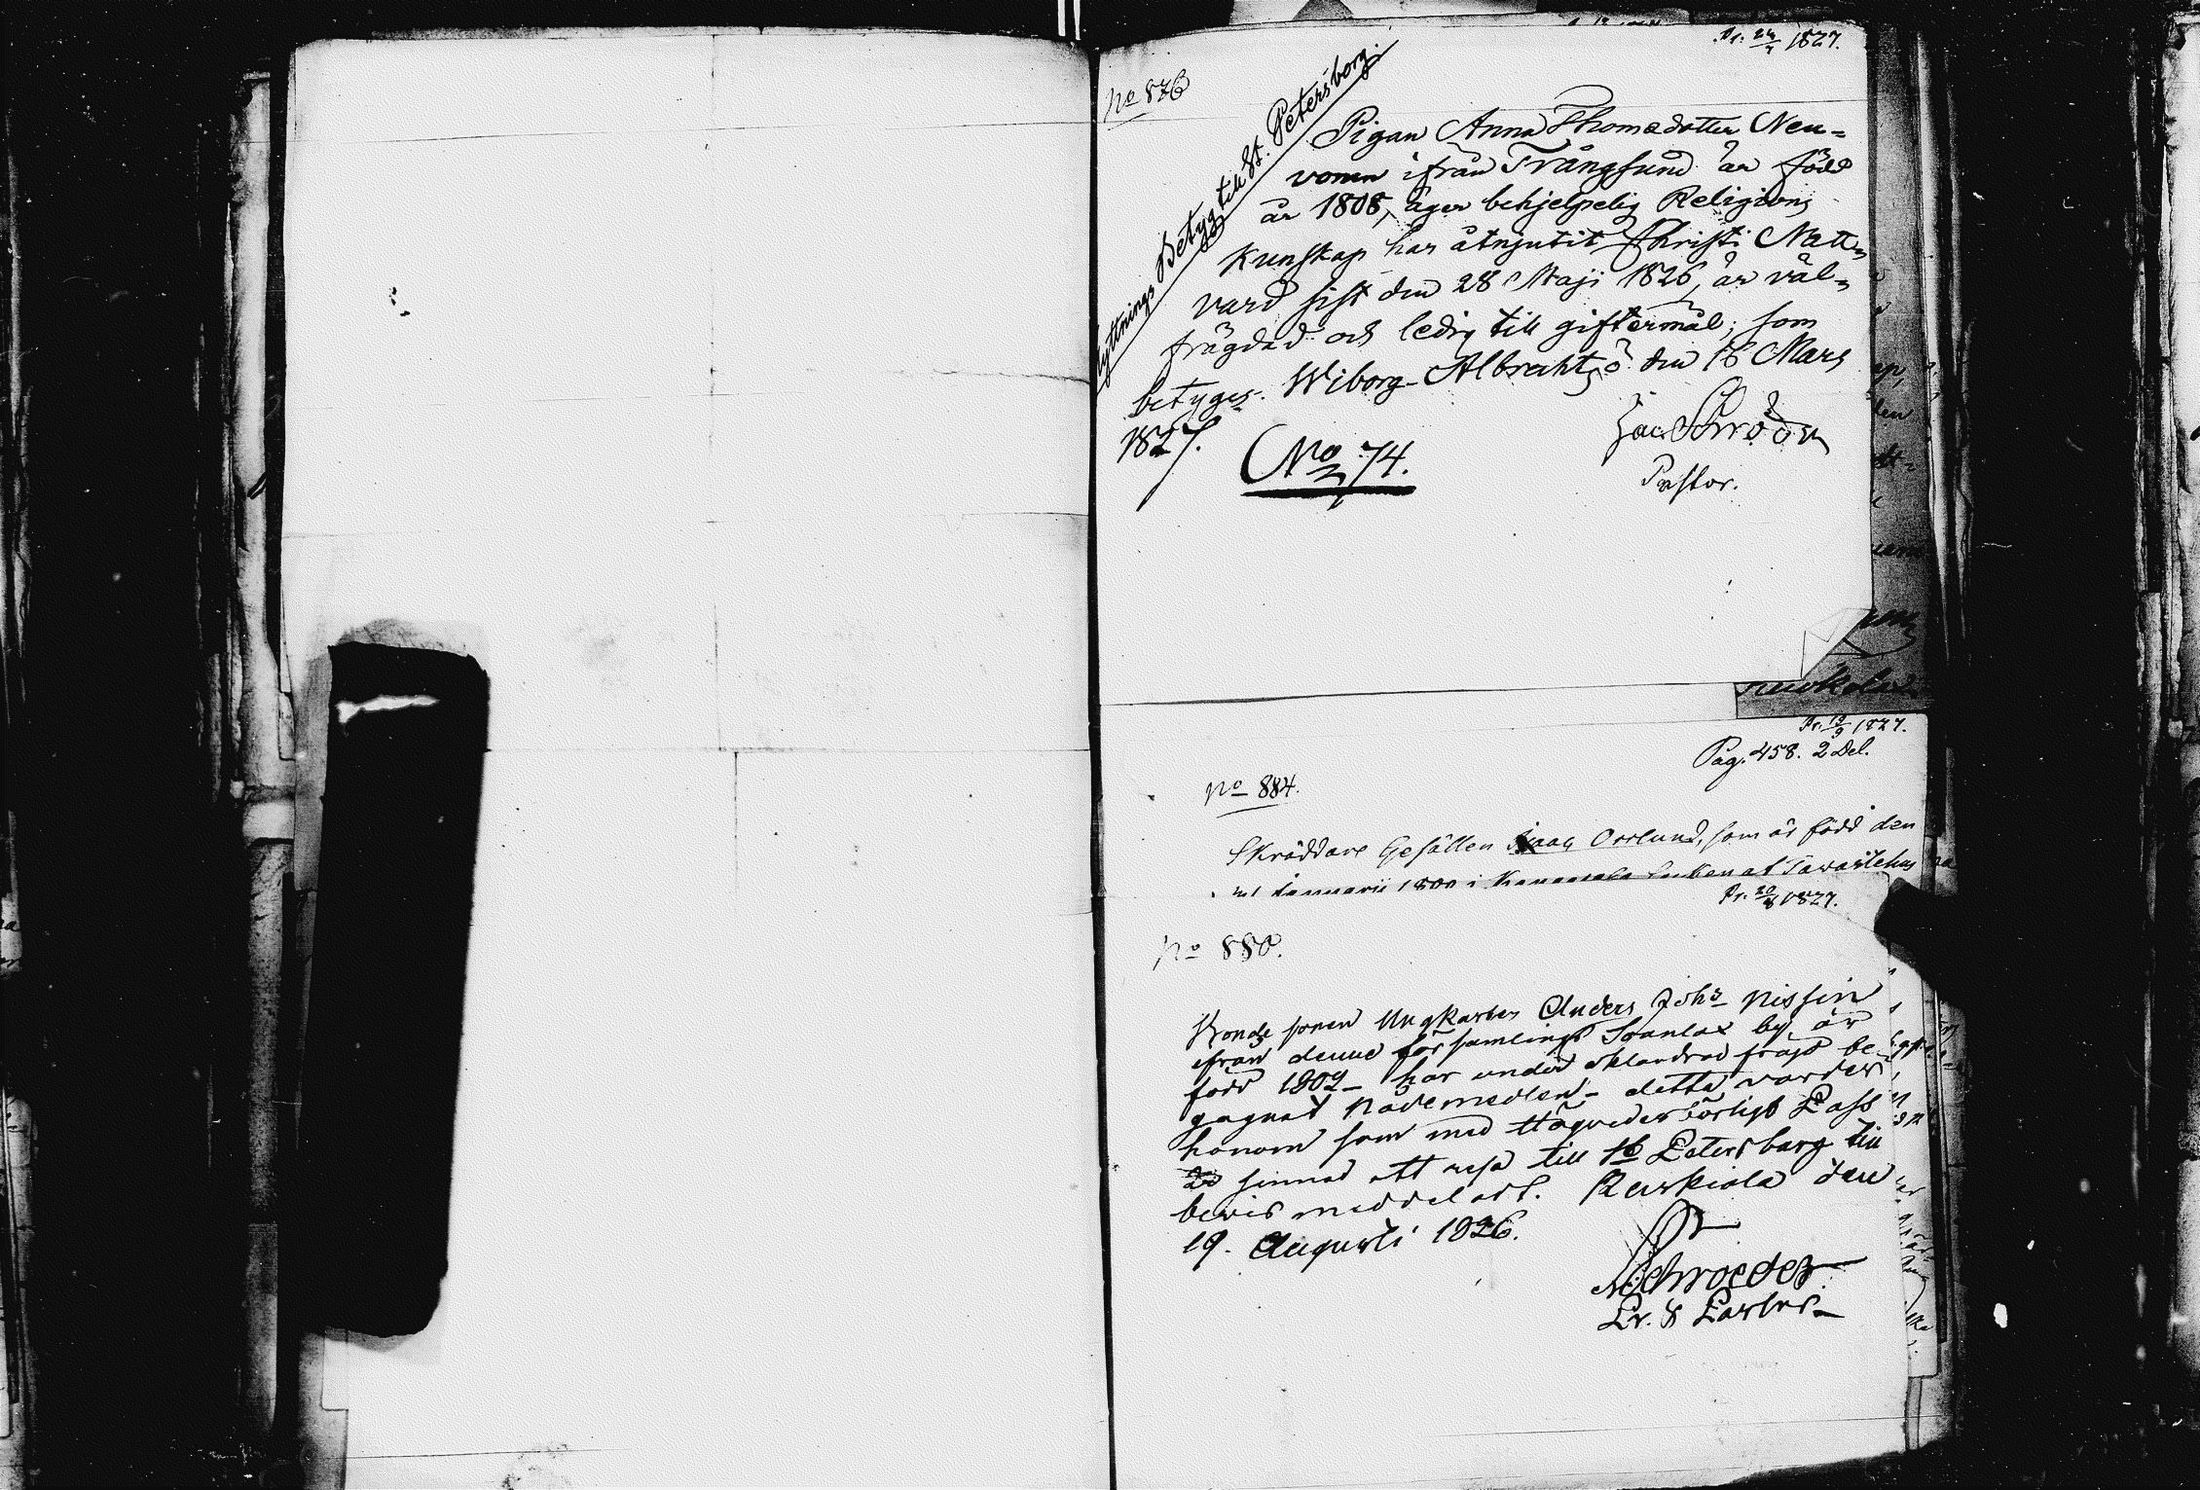 Pr. 24/7 1827.
No 876
Flyttnings Betyg till St. Petersborg.
Pigan Anna Thomsdotter Neu-
vonen ifrån Trångsund är född
år 1808, äger behjelpelig Religions
kunskap har åtnjutit Christi Natt-
vard sist den 28 Maji 1826, är väl-
frägdad och ledig till giftermål; som
betyges. Wiborg-Albrechtsö den 16 Mars
1827.
Jac. Schroder
Pastor.
No 74.
Pr. 19/9 1827.
Pag. 458. 2 Del.
No 884.
Skräddare Gesällen Isaac Orrlund, som är född den
Januarii 1800 i Tawastehus
Pr. 20/8 1827.
No 880.
Bonde sonen Ungkarlen Anders Johs Nissin
ifrån denne församlings by, är
född 1802 - har under oklandrad frägd be-
gagnat Nådemedlen - detta varder
honom som med Högvederbörligt Pass
är sinnad att resa till St Petersburg till
bevis meddeladt. Ruskiala den
19. Augusti 1826.
Schroeder
Pr. & Pastor